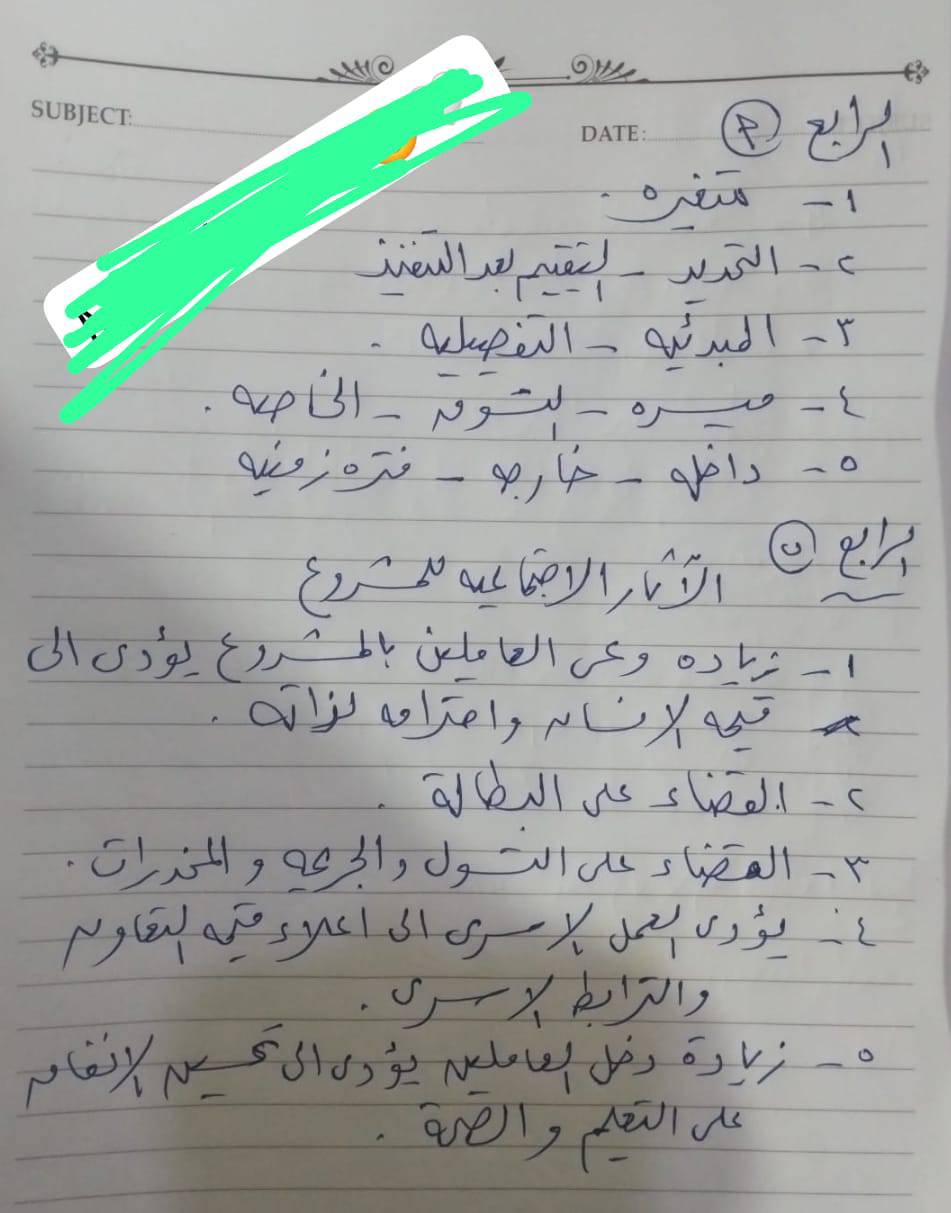 SUBJECT:
DATE:
الرابع (P)
١- متغيره.
٢- التحديد - التقييم بعد التنفيذ
٣- المبدئيه - التفصيليه.
٤- ميسره - السوق - الخاصه.
٥- داخله - خارجه - فتره زمنيه
الرابع (ب)
الآثار الاجتماعيه للمشروع
١- زياده وعى العاملين بالمشروع يؤدى الى
قيمه الانسان واحترامه لذاته.
٢- القضاء على البطالة.
٣- القضاء على التسول والجريمه والمخدرات.
٤- يؤدى العمل الاسرى الى اعلاء قيمه التعاون
والترابط الاسرى.
٥- زيادة دخل العاملين يؤدى الى تحسين الانفاق
على التعليم والصحة.